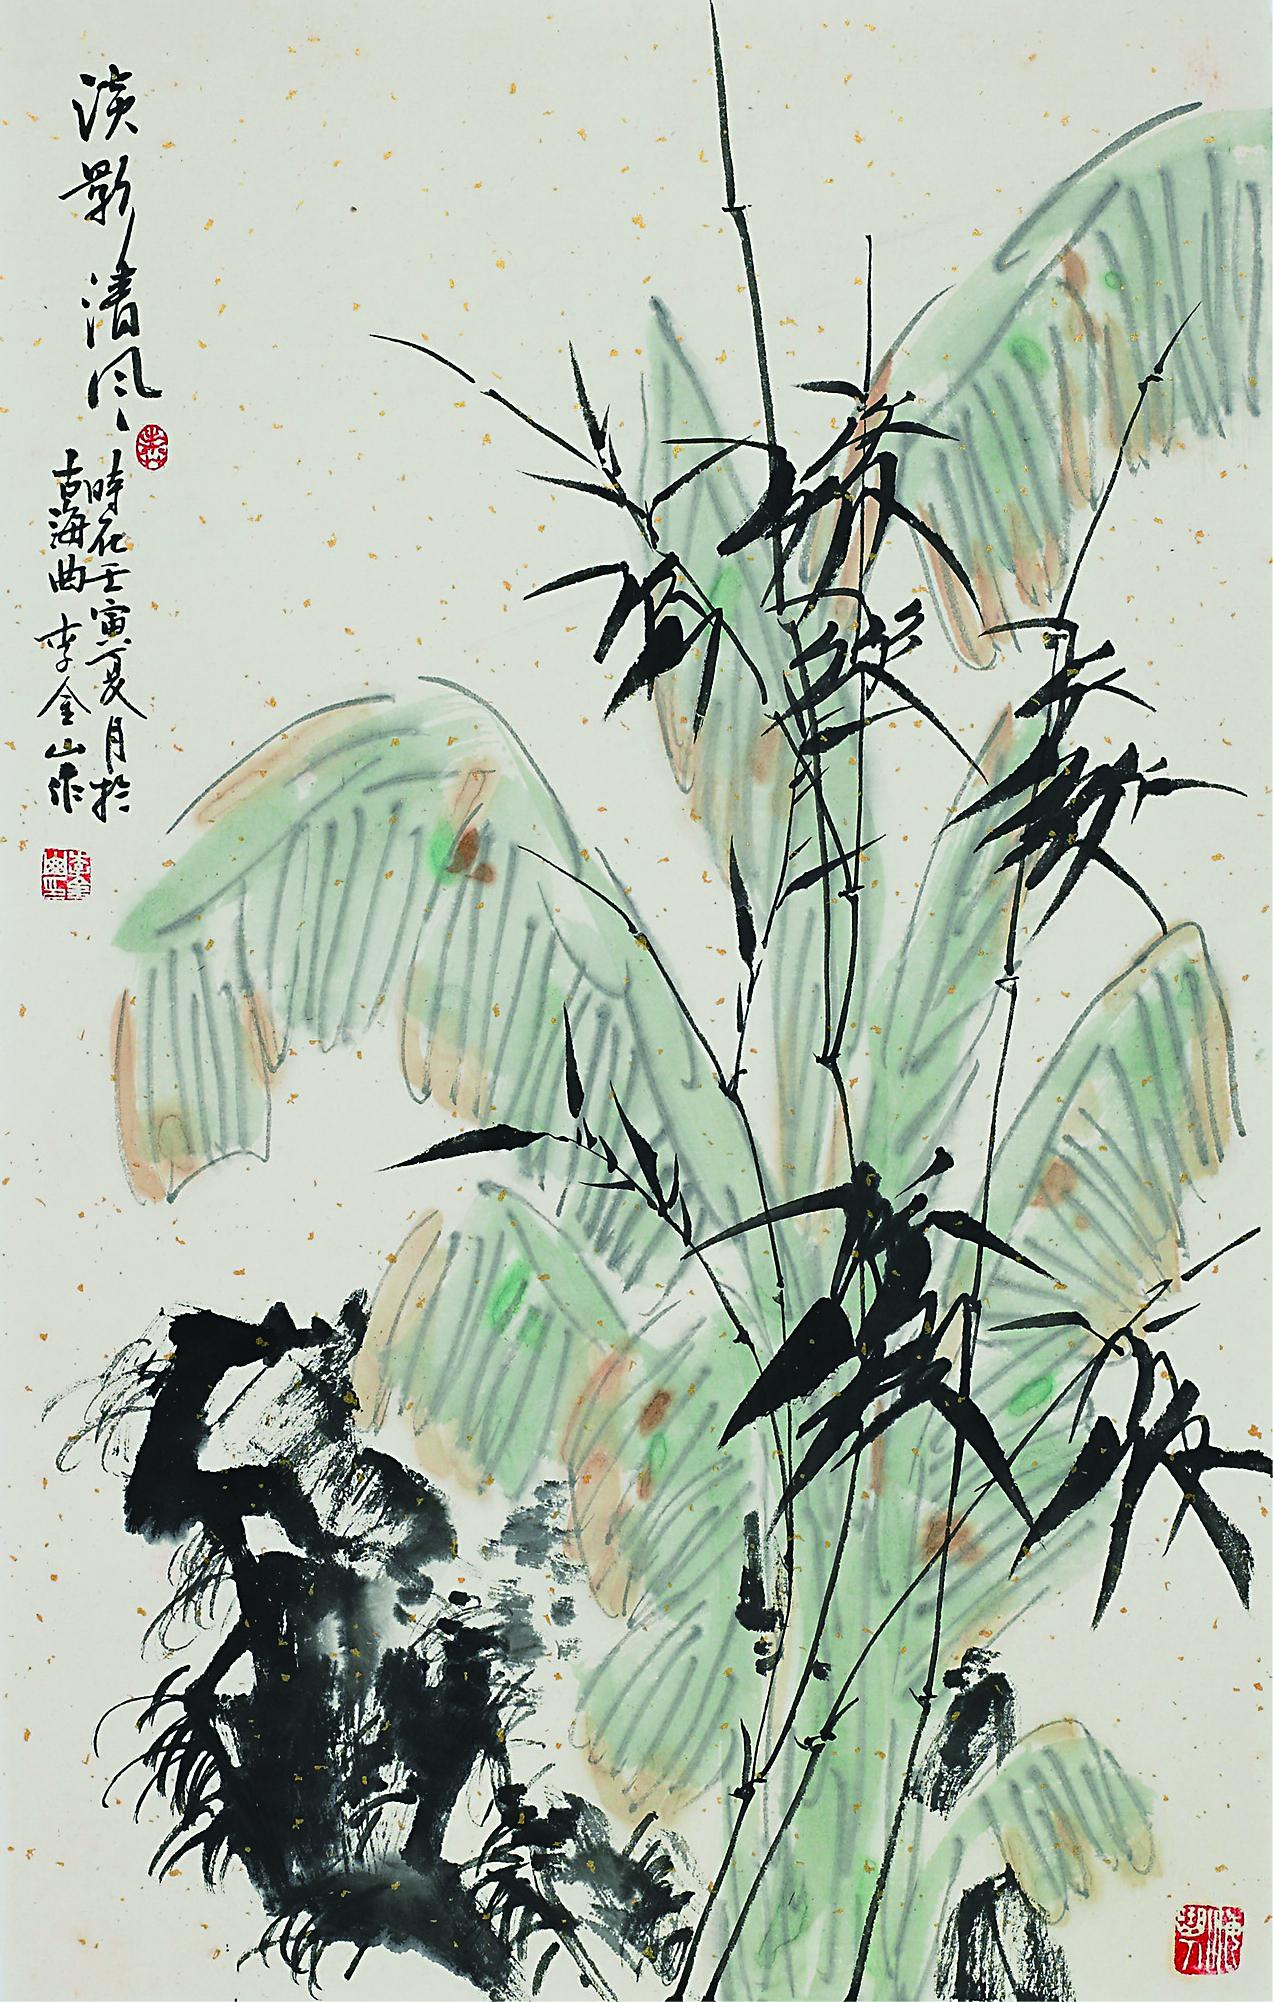 淡影清风
时在壬寅夏月於
古海曲李金山作
李金山印